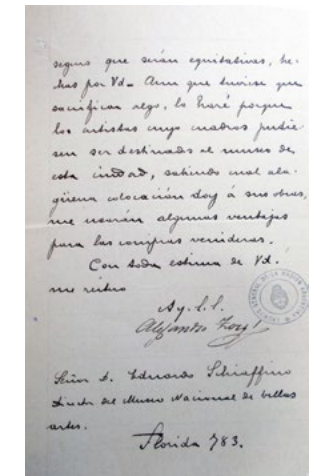 seguro que serán equitativas, he-
chas por Vd. Aun que tuviese que
sacrificar algo, lo haré porque
los artistas cuyos cuadros pudie-
sen ser destinados al museo de
esta ciudad, sabiendo cual ala-
güena colocación doy á sus obras,
me usarán algunas ventajas
para las compras venideras.
Con toda estima de Vd.
me reitero
Alejandro
Señor D. Eduardo Schiaffino
Director del Museo Nacional de bellas
artes.
Florida 783.